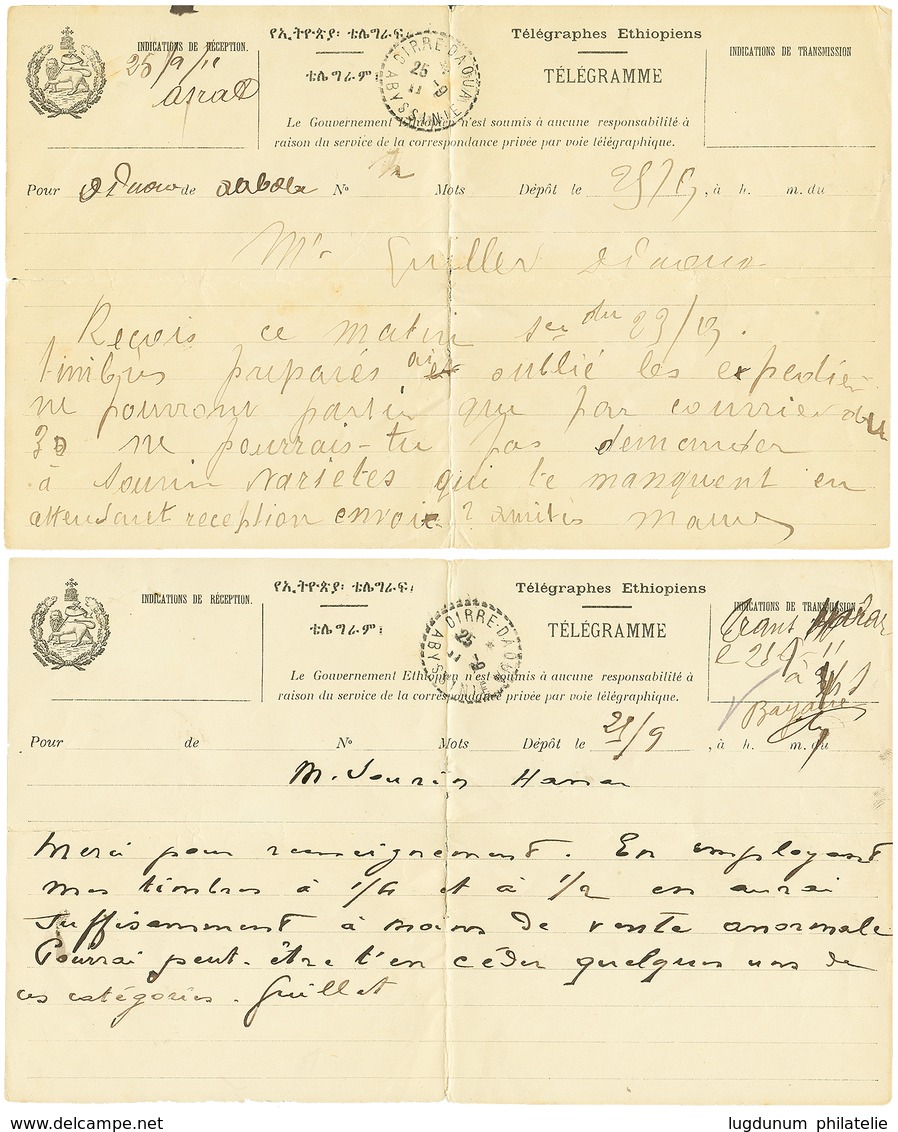 INDICATIONS DE RÉCEPTION.
25/9/11
የኢትዮጵያ፡ ቴሌግራፍ፡
ቴሌግራም፡
DIRRE-DAOUA
25 -9 11
ABYSSINIE
Télégraphes Ethiopiens
TÉLÉGRAMME
INDICATIONS DE TRANSMISSION
Le Gouvernement Ethiopien n'est soumis à aucune responsabilité à
raison du service de la correspondance privée par voie télégraphique.
Pour de N° Mots Dépôt le , à h. m. du
Mr Guillet
Reçois ce matin du 23/9.
timbres préparés ai oublié les expedier
ne pourront partir que par courrier du
30 ne pourrais-tu pas demander
à Sourin varietes qui te manquent en
attendant reception envoi ? amitiés
INDICATIONS DE RÉCEPTION.
የኢትዮጵያ፡ ቴሌግራፍ፡
ቴሌግራም፡
DIRRE-DAOUA
25 -9 11
ABYSSINIE
Télégraphes Ethiopiens
TÉLÉGRAMME
INDICATIONS DE TRANSMISSION
Le Gouvernement Ethiopien n'est soumis à aucune responsabilité à
raison du service de la correspondance privée par voie télégraphique.
Pour de N° Mots Dépôt le 25/9 , à h. m. du
M. Sourin Harrar
Merci pour renseignement. En employant
mes timbres à 1/4 et à 1/2 en aurai
suffisamment à moins de vente anormale
Pourrai peut-être t'en céder quelques uns de
ces catégories. Guillet
www.delcampe.net
lugdunum philatelie